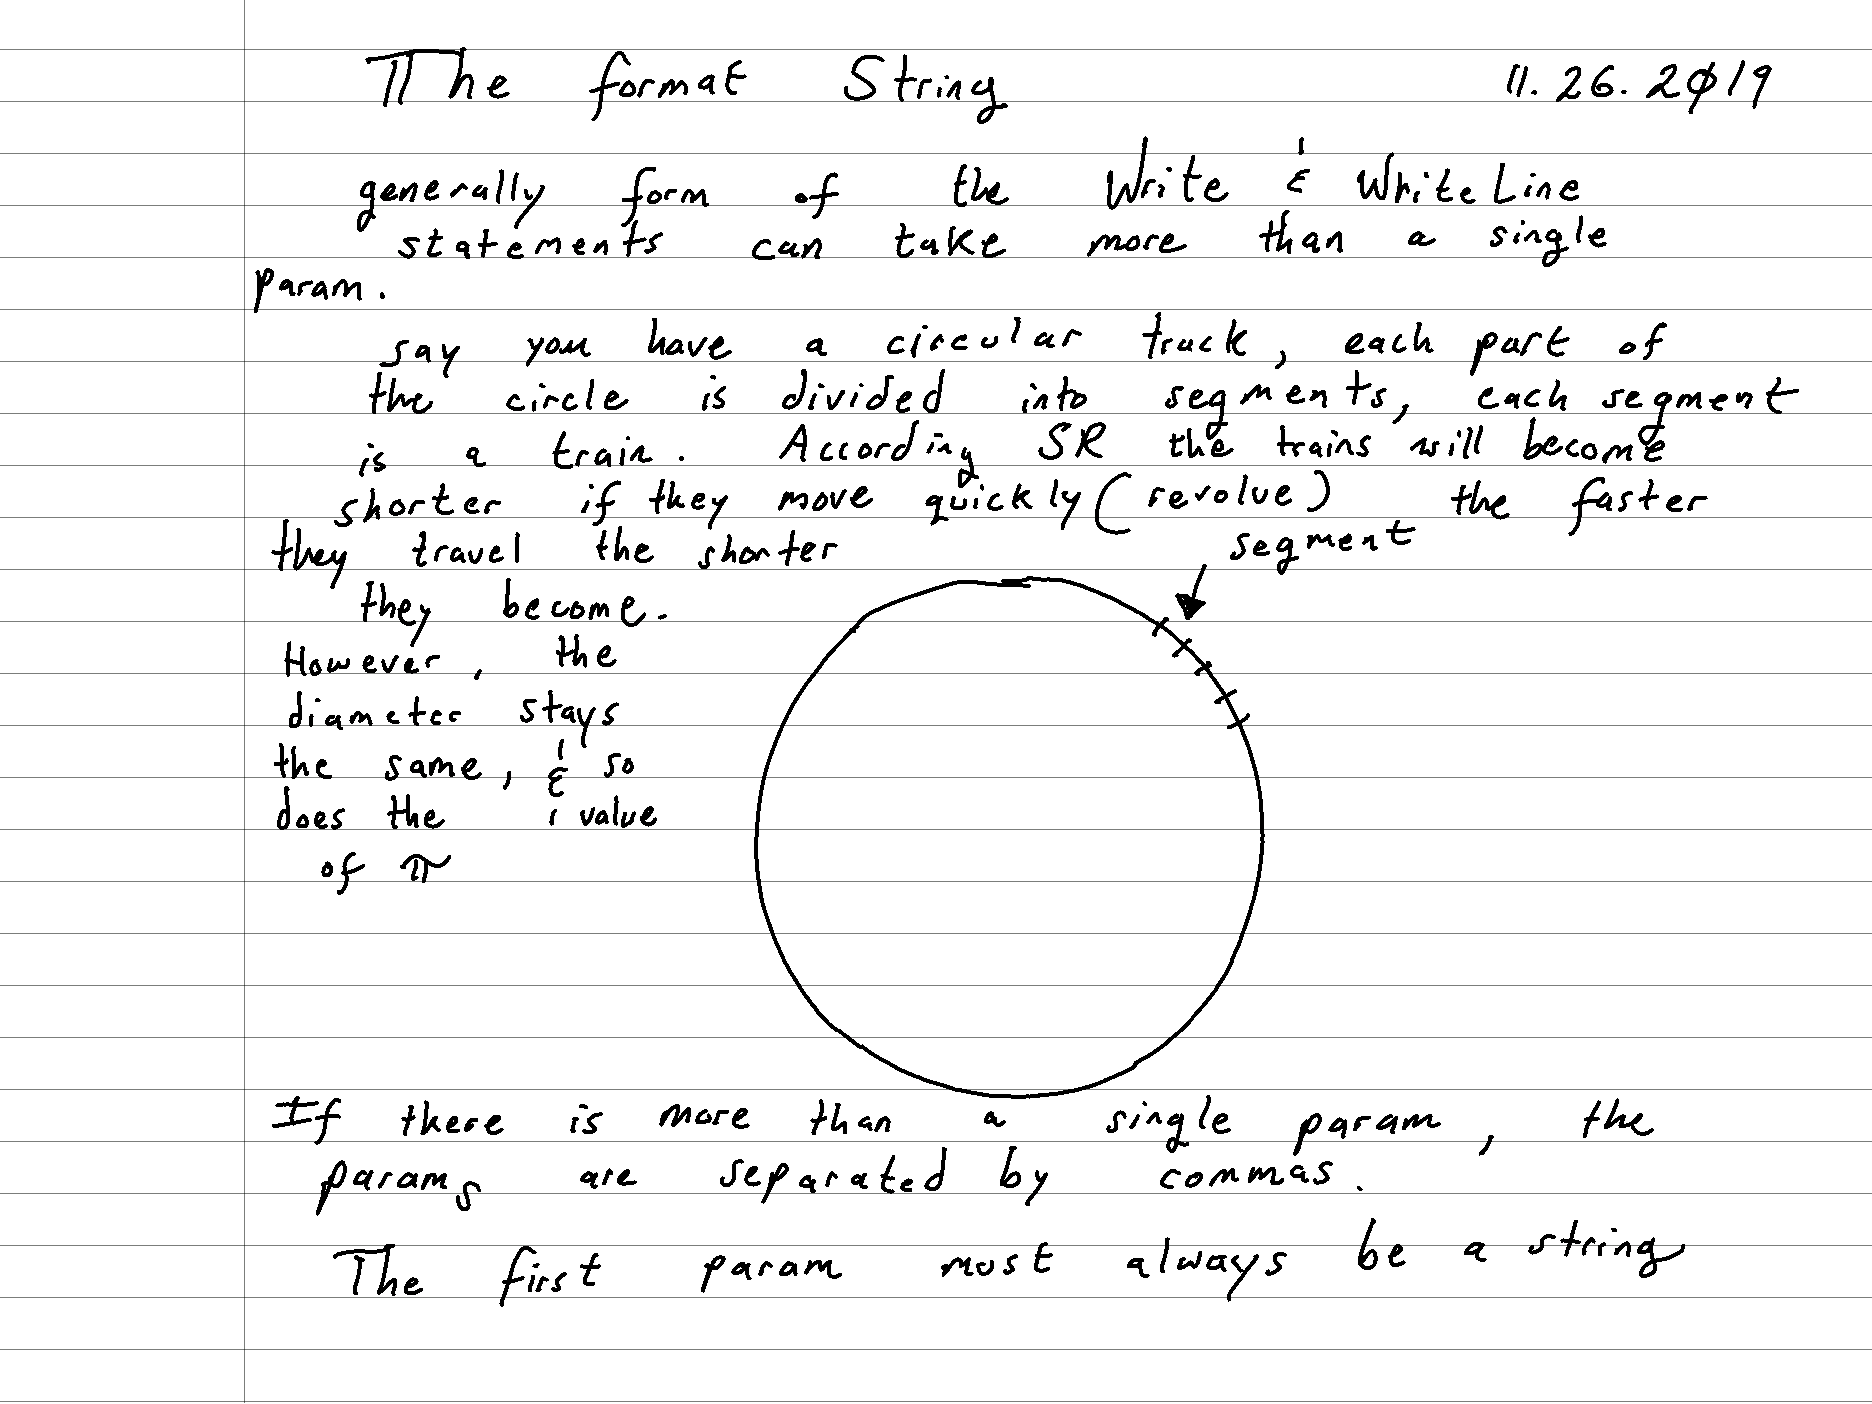 The format String 11.26.2019
generally form of the Write & WhiteLine
statements can take more than a single
param.
say you have a circular track, each part of
the circle is divided into segments, each segment
is a train. According SR the trains will become
shorter if they move quickly (revolve) the faster
they travel the shorter
segment
they become.
However, the
diameter stays
the same, & so
does the value
of π
If there is more than a single param, the
params are separated by commas.
The first param must always be a string